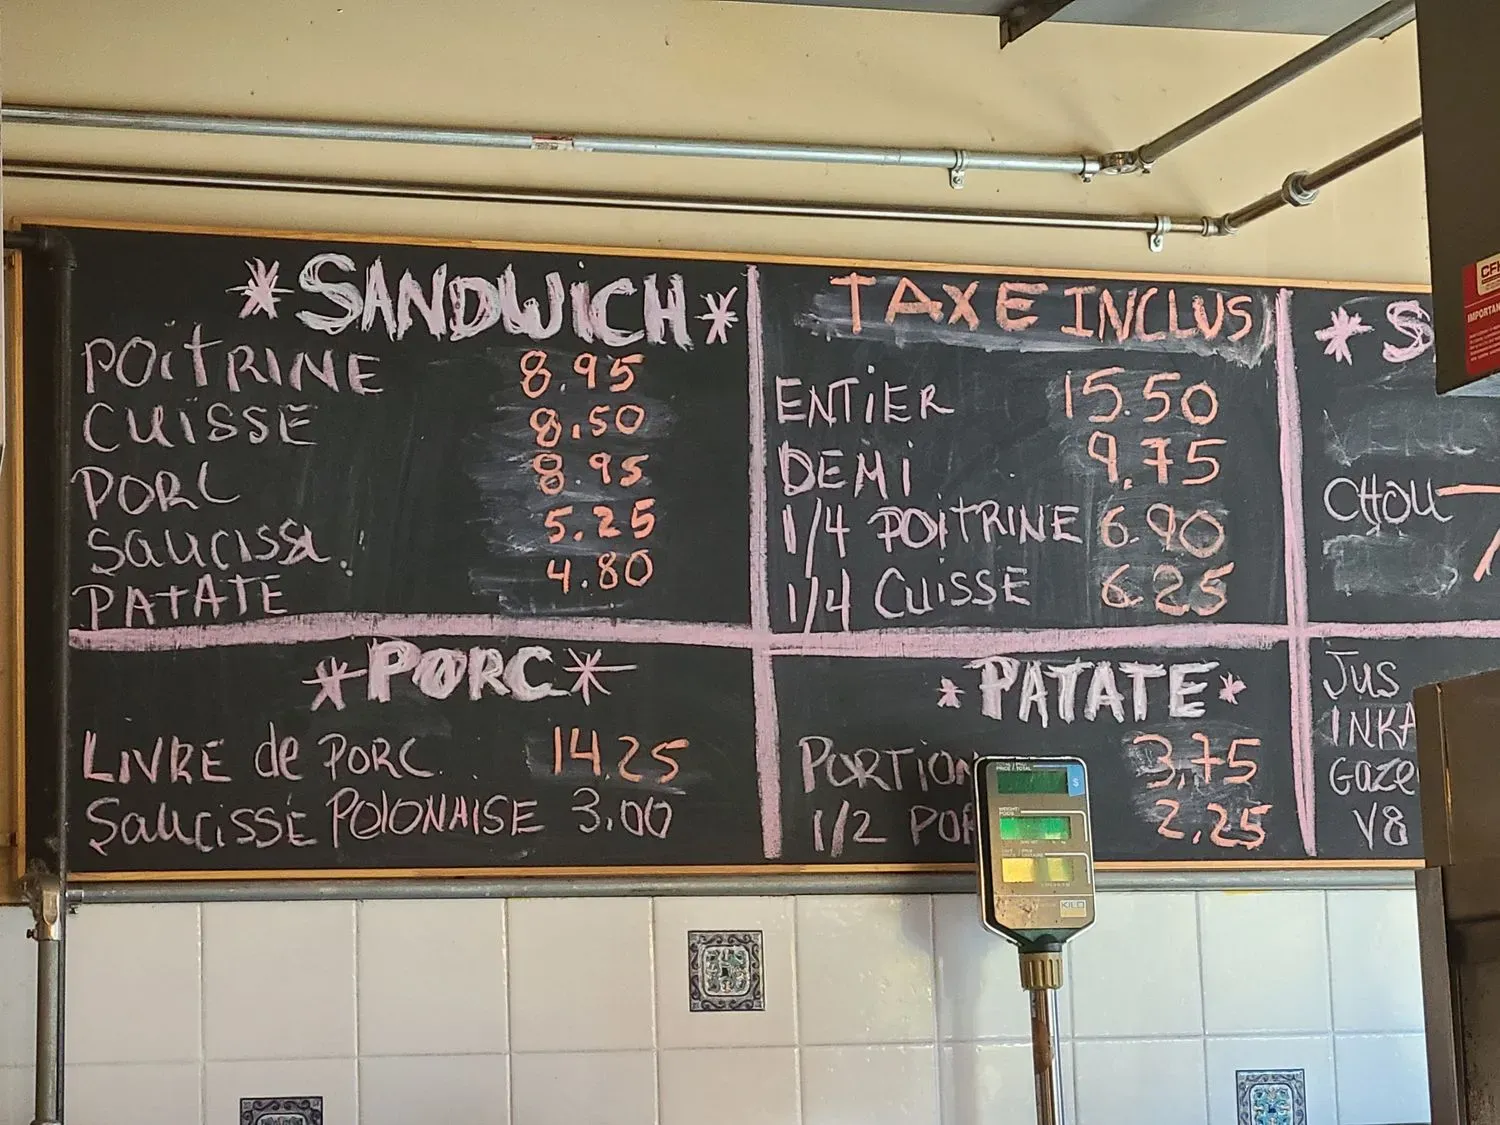 *SANDWICH*
POITRINE 8.95
CUISSE 8.50
PORC 8.95
SAUCISSE. 5.25
PATATE 4.80
TAXE INCLUS
ENTIER 15.50
DEMI 9.75
1/4 POITRINE 6.90
1/4 CUISSE 6.25
* S
CHOU
*PORC*
LIVRE de PORC... 14.25
SAUCISSE POLONAISE 3.00
*PATATE*
PORTION 3,75
1/2 POR 2,25
JUS
INKA
GAZE
V8
KILO
IMPORTAN